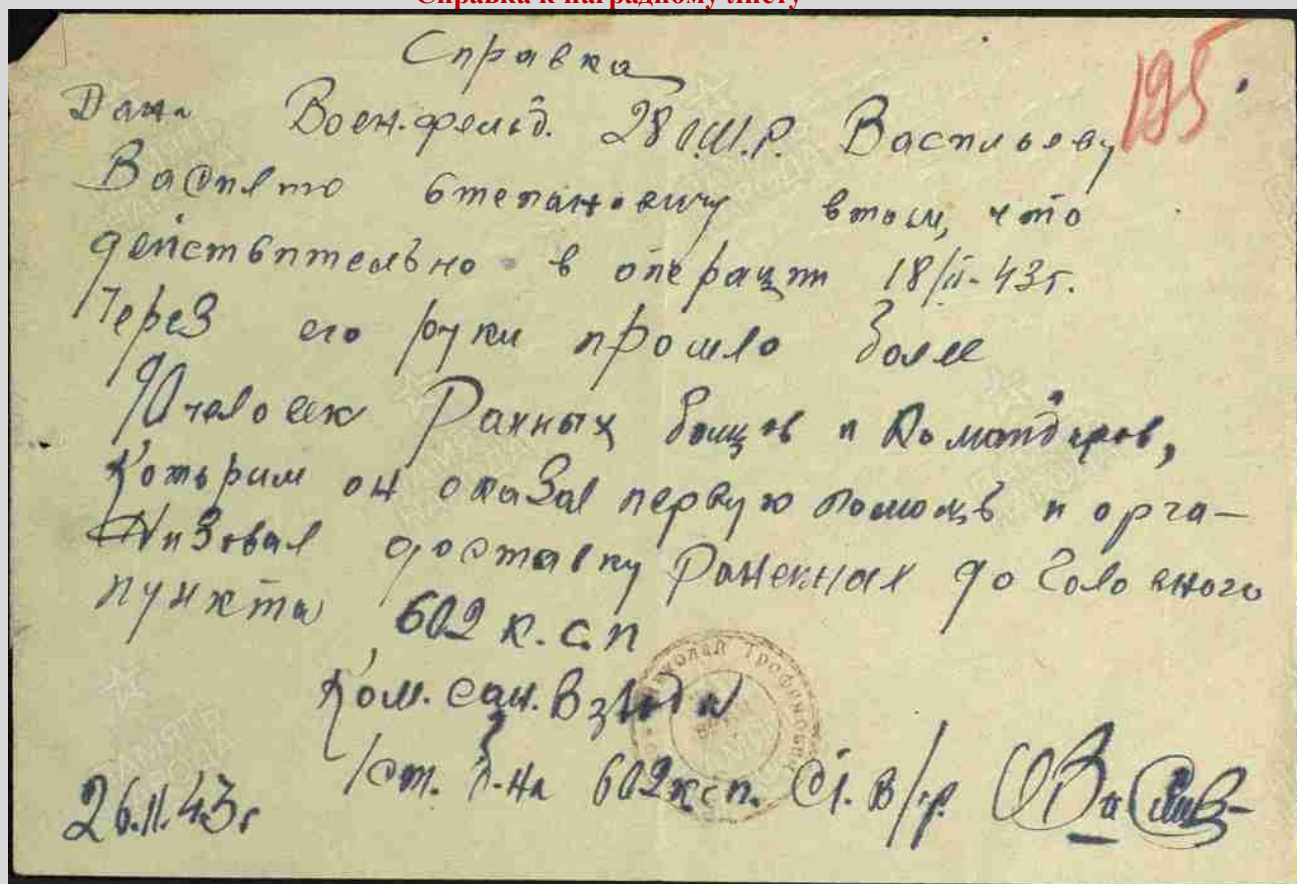 Справка к наградному листу
Справка
195
Дана Воен.фельд. 28 О.Ш.Р. Васильеву
Василию Степановичу втом, что
действительно в операции 18/II-43г.
Через его руки прошло более
90 человек Ранных бойцов и Командиров,
Которым он оказал первую помощь и орга-
Низовал доставку Раненных до Головного
пункта 602 к.с.п
Ком. сан. Взвода
602 ксп. Ст. в/ф.
26.II.43г